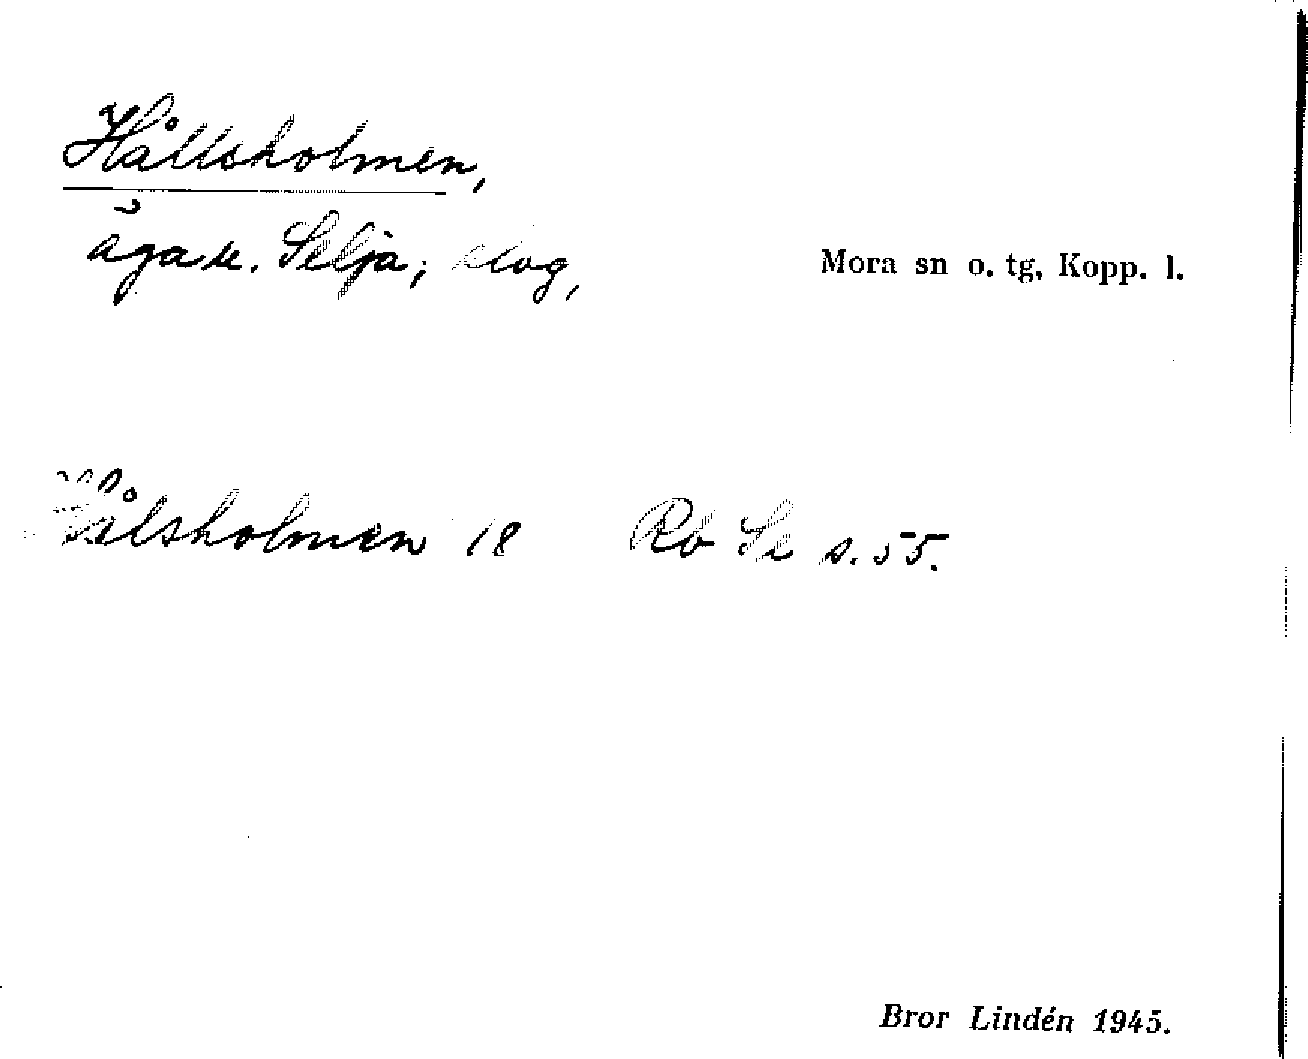 Hållsholmen,
ägak. Selja; skog,
Mora sn o. tg, Kopp. l.
Hålsholmen 18 Rb Se s. 55.
Bror Lindén 1945.